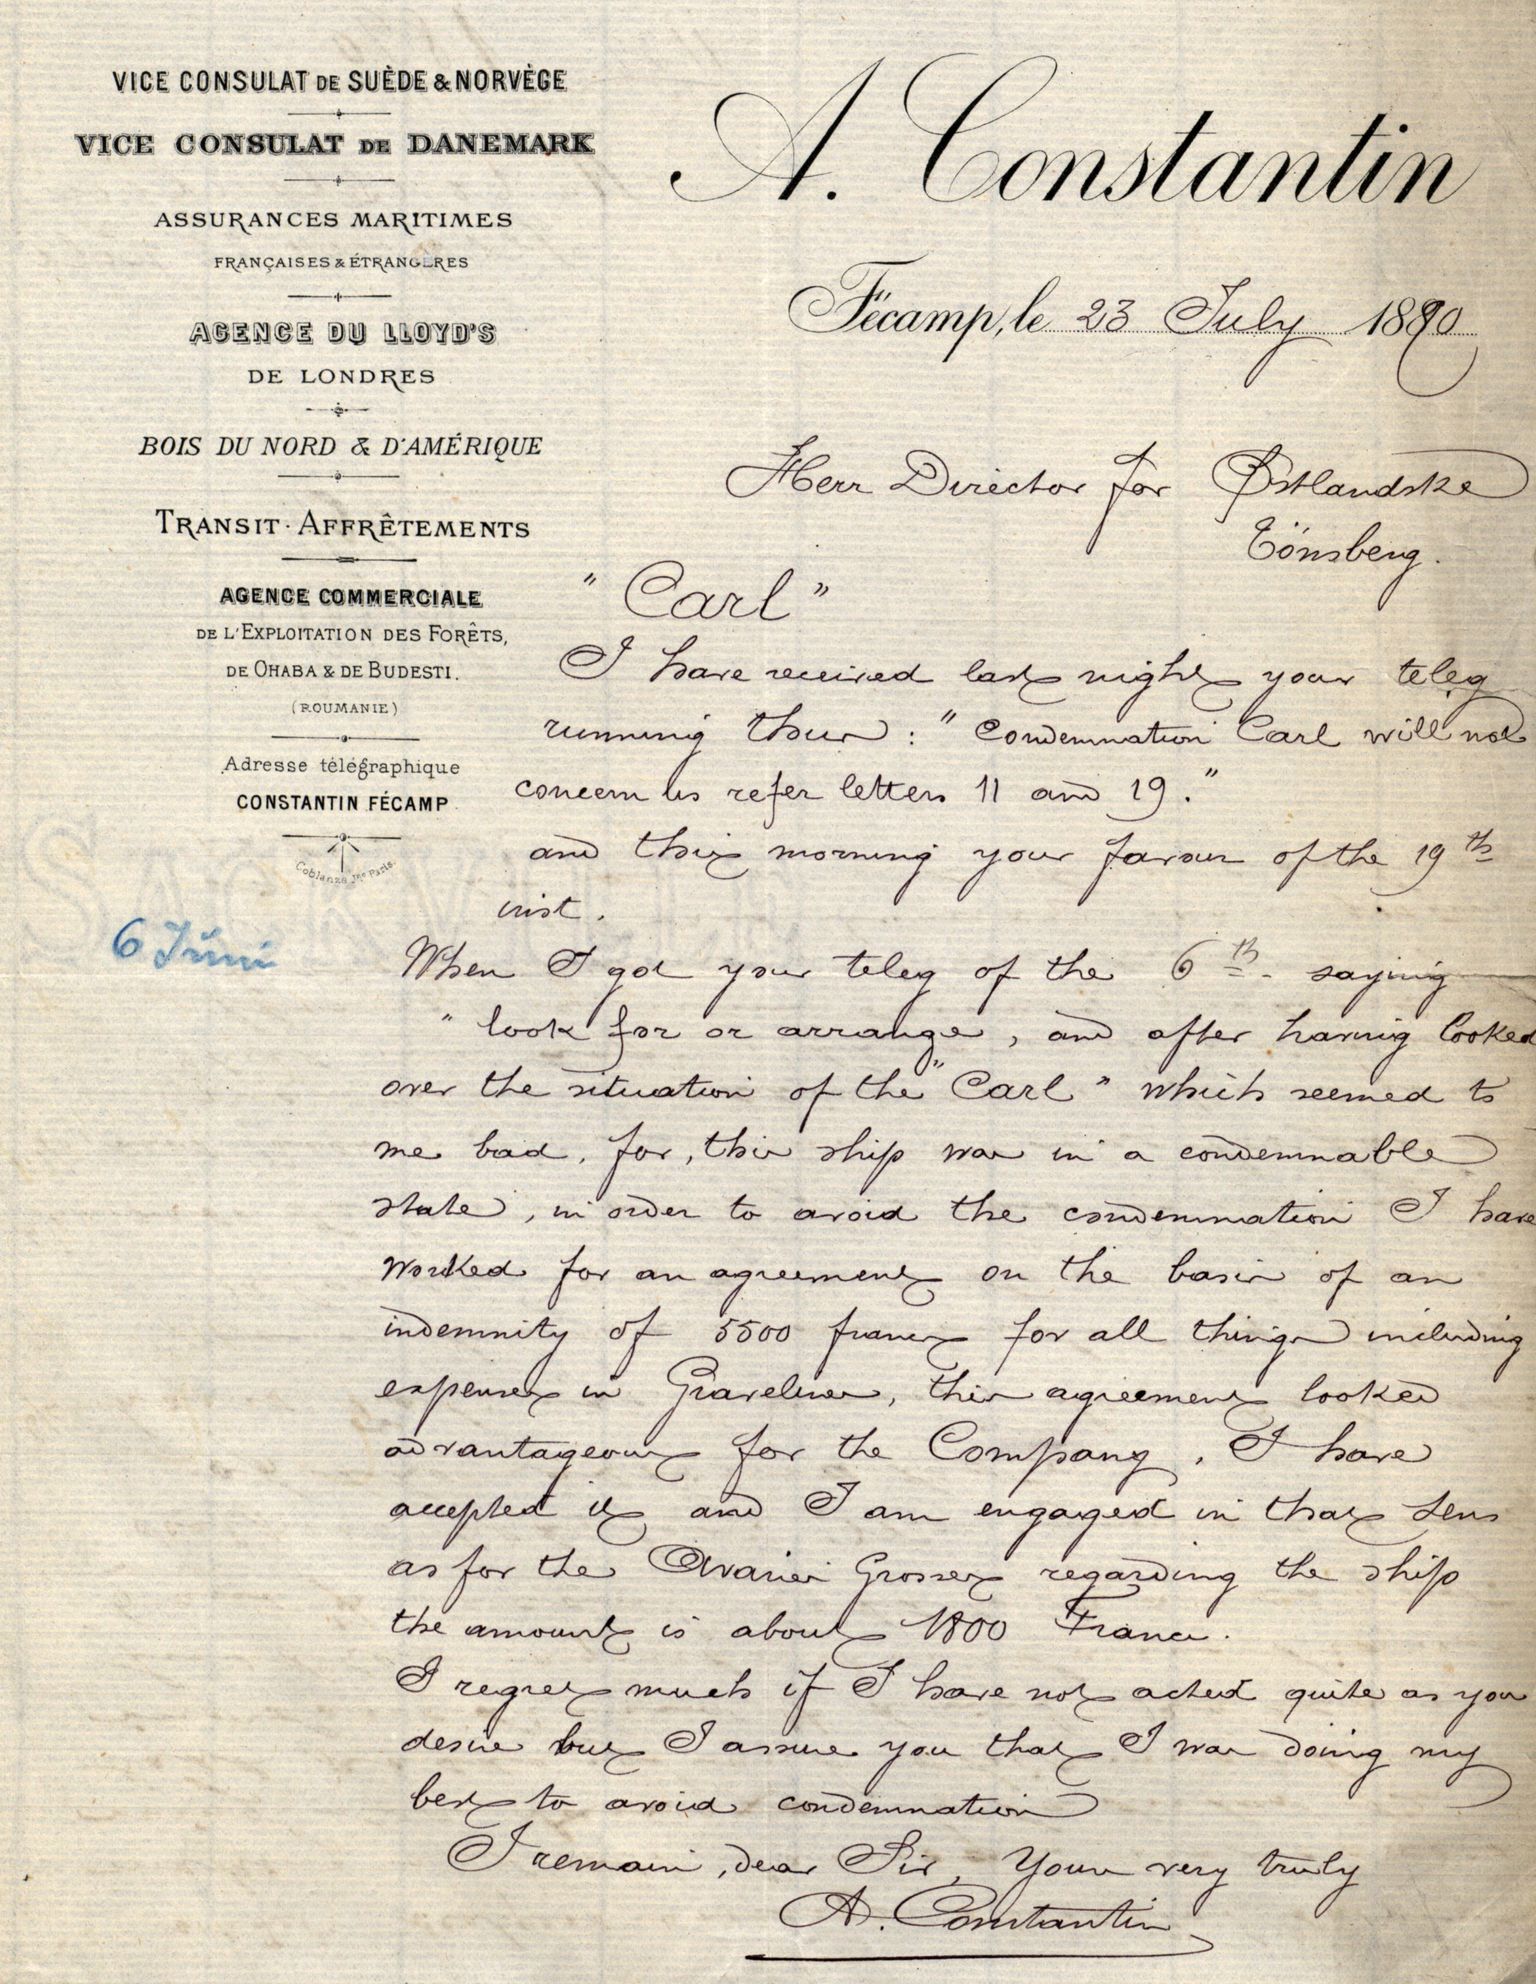 VICE CONSULAT DE SUÈDE & NORVÈGE
VICE CONSULAT DE DANEMARK
ASSURANCES MARITIMES
FRANÇAISES & ÉTRANGÈRES
AGENCE DU LLOYD'S
DE LONDRES
BOIS DU NORD & D'AMÉRIQUE
TRANSIT · AFFRÊTEMENTS
AGENCE COMMERCIALE
DE L'EXPLOITATION DES FORÊTS,
DE OHABA & DE BUDESTI.
(ROUMANIE)
Adresse télégraphique
CONSTANTIN FÉCAMP
Coblanze Jne Paris.
A. Constantin
Fécamp, le 23 July 1890
Herr Director for Østlandske
Tönsberg.
"Carl"
I have received last night your teleg
running thus : "Condemnation Carl will not
concern us refer letters 11 and 19."
and this morning your favour of the 19th
inst.
6 Juni
When I got your teleg of the 6th. saying
"look for or arrange, and after having looked
over the situation of the "Carl" which seemed to
me bad, for, this ship was in a condemnable
state, in order to avoid the condemnation I have
worked for an agreement on the basis of an
indemnity of 5500 francs for all things including
expenses in Gravelines, this agreement looked
advantageous for the Company, I have
accepted it and I am engaged in that sens
as for the Avaries Grosses regarding the ship
the amount is about 1800 Francs.
I regret much if I have not acted quite as you
desire but I assure you that I was doing my
best to avoid condemnation
I remain, dear Sir, Yours very truly
A. Constantin